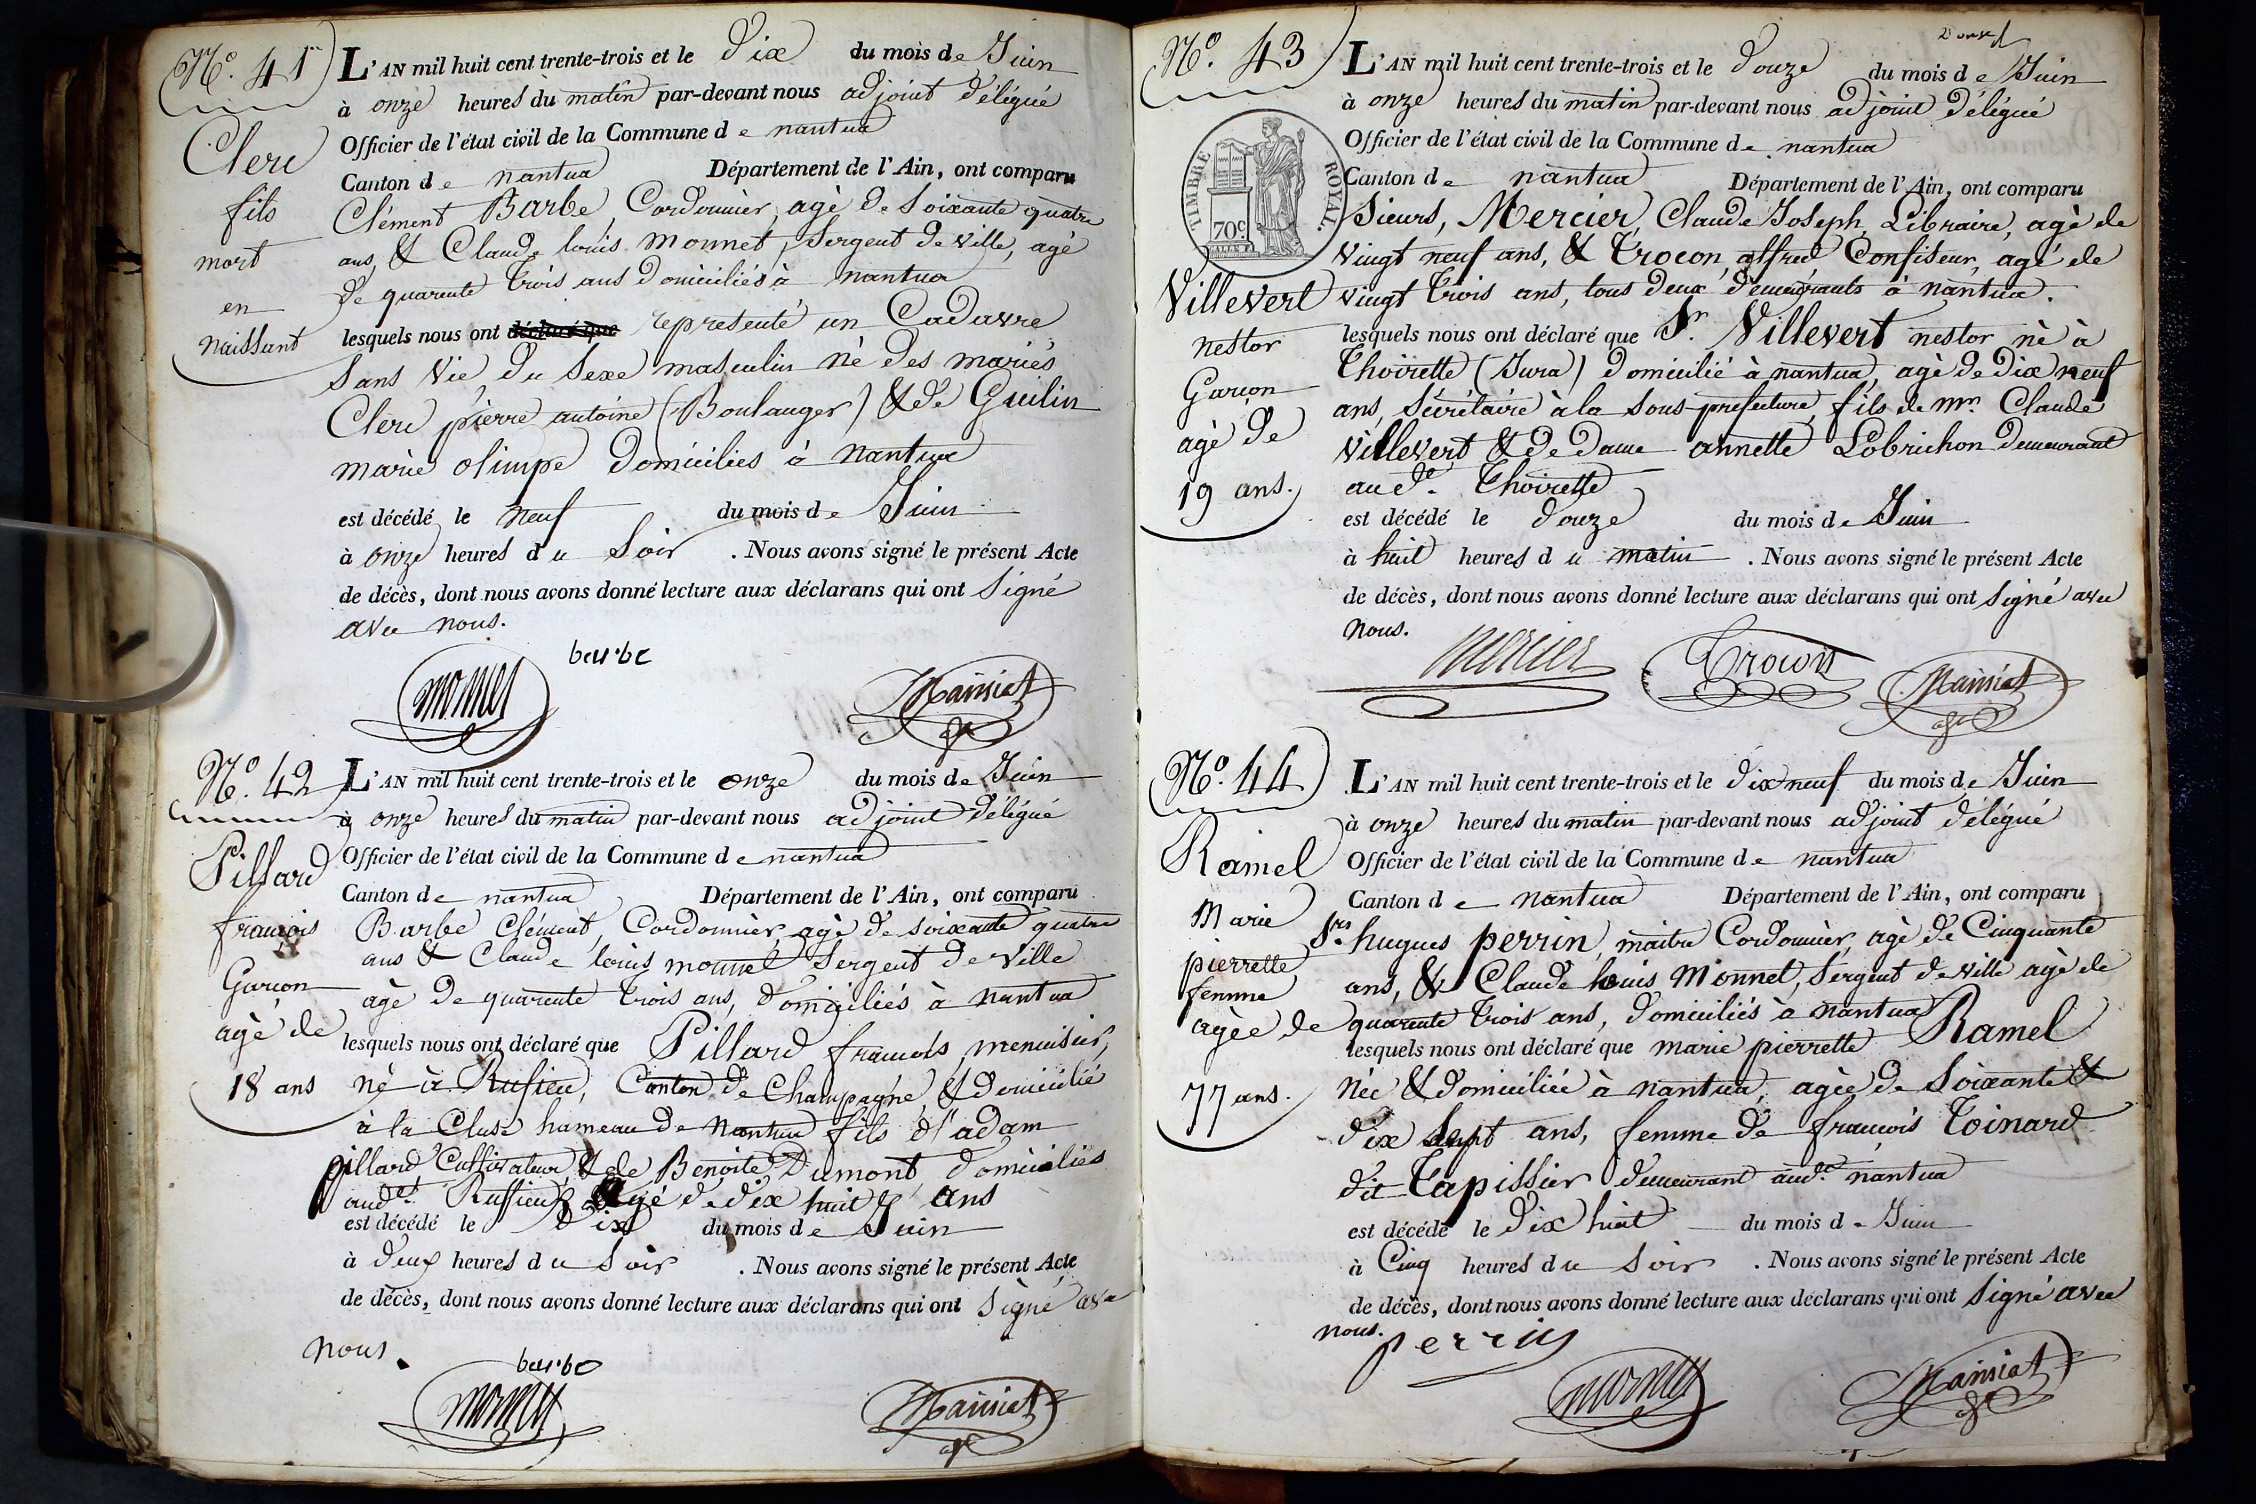 N.º 41
L'AN mil huit cent trente-trois et le Dix du mois de Juin
à onze heures du matin par-devant nous adjoint délégué
Officier de l'état civil de la Commune de nantua
Canton de nantua Département de l'Ain, ont comparu
Clerc
fils
mort
en
naissant
Clément Barbe, Cordonnier, agé de Soixante quatre
ans, & Claude louis monnet, Sergent de ville, agé
de quarente trois ans Domiciliés à nantua
lesquels nous ont déclaré que représenté un Cadavre
Sans Vie du Sexe masculin né des mariés
Clerc pierre antoine (Boulanger) & de Guilin
marie olimpe Domiciliés à nantua
est décédé le neuf du mois de Juin
à onze heures du Soir . Nous avons signé le présent Acte
de décès, dont nous avons donné lecture aux déclarans qui ont Signé
avec nous.
barbe
monnet
Mainiat
N.º 42
L'AN mil huit cent trente-trois et le onze du mois de Juin
à onze heures du matin par-devant nous adjoint délégué
Officier de l'état civil de la Commune de nantua
Canton de nantua Département de l'Ain, ont comparu
Pillard
francois
Garcon
agé de
18 ans
Barbe Clément, Cordonnier, agé de soixante quatre
ans & Claude louis monnet Sergent de ville
agé de quarente trois ans, domiciliés à nantua
lesquels nous ont déclaré que Pillard francois menuisier,
né à Rufieu, Canton de Champagne, & domicilié
à la Cluse hameau de Nantua fils d'adam
pillard Cultivateur, & de Benoite Dumont, domiciliés
aud.et Ruffieu, agé de dix huit ans
est décédé le dix du mois de Juin
à deux heures du Soir . Nous avons signé le présent Acte
de décès, dont nous avons donné lecture aux déclarans qui ont Signé avec
nous.
barbe
monnet
Mainiat
N.º 43
L'AN mil huit cent trente-trois et le douze du mois de Juin
à onze heures du matin par-devant nous adjoint délégué
Officier de l'état civil de la Commune de nantua
Canton de nantua Département de l'Ain, ont comparu
TIMBRE ROYAL.
70c.
Villevert
nestor
Garcon
agé de
19 ans.
Sieurs, Mercier, Claude Joseph, Libraire, agé de
vingt neuf ans, & Crocon, alfred Confiseur, agé de
vingt trois ans, tous deux demeurants à nantua.
lesquels nous ont déclaré que S.r Villevert nestor né à
Thoirette (Jura) domicilié à nantua, agé de dix neuf
ans, Sécrétaire à la sous-prefecture, fils de mr. Claude
villevert & de Dame annette Lobrichon demeurant
aud.t Thoirette
est décédé le douze du mois de Juin
à huit heures du matin . Nous avons signé le présent Acte
de décès, dont nous avons donné lecture aux déclarans qui ont Signé avec
nous.
mercier
Crocon
Mainiat
N.º 44
L'AN mil huit cent trente-trois et le dix neuf du mois de Juin
à onze heures du matin par-devant nous adjoint délégué
Officier de l'état civil de la Commune de nantua
Canton de nantua Département de l'Ain, ont comparu
Ramel
Marie
pierrette
femme
agée de
77 ans.
S.rs hugues perrin, maitre Cordonnier, agé de Cinquante
ans, & Claude louis Monnet, Sergent de ville agé de
quarente trois ans, domiciliés à nantua
lesquels nous ont déclaré que marie pierrette Ramel
née & domiciliée à nantua, agée de Soixante &
dix Sept ans, femme de francois Toinard
dit Tapissier demeurant aud.t nantua
est décédé le dix huit du mois de Juin
à Cinq heures du Soir . Nous avons signé le présent Acte
de décès, dont nous avons donné lecture aux déclarans qui ont Signé avec
nous.
perrin
monnet
Mainiat